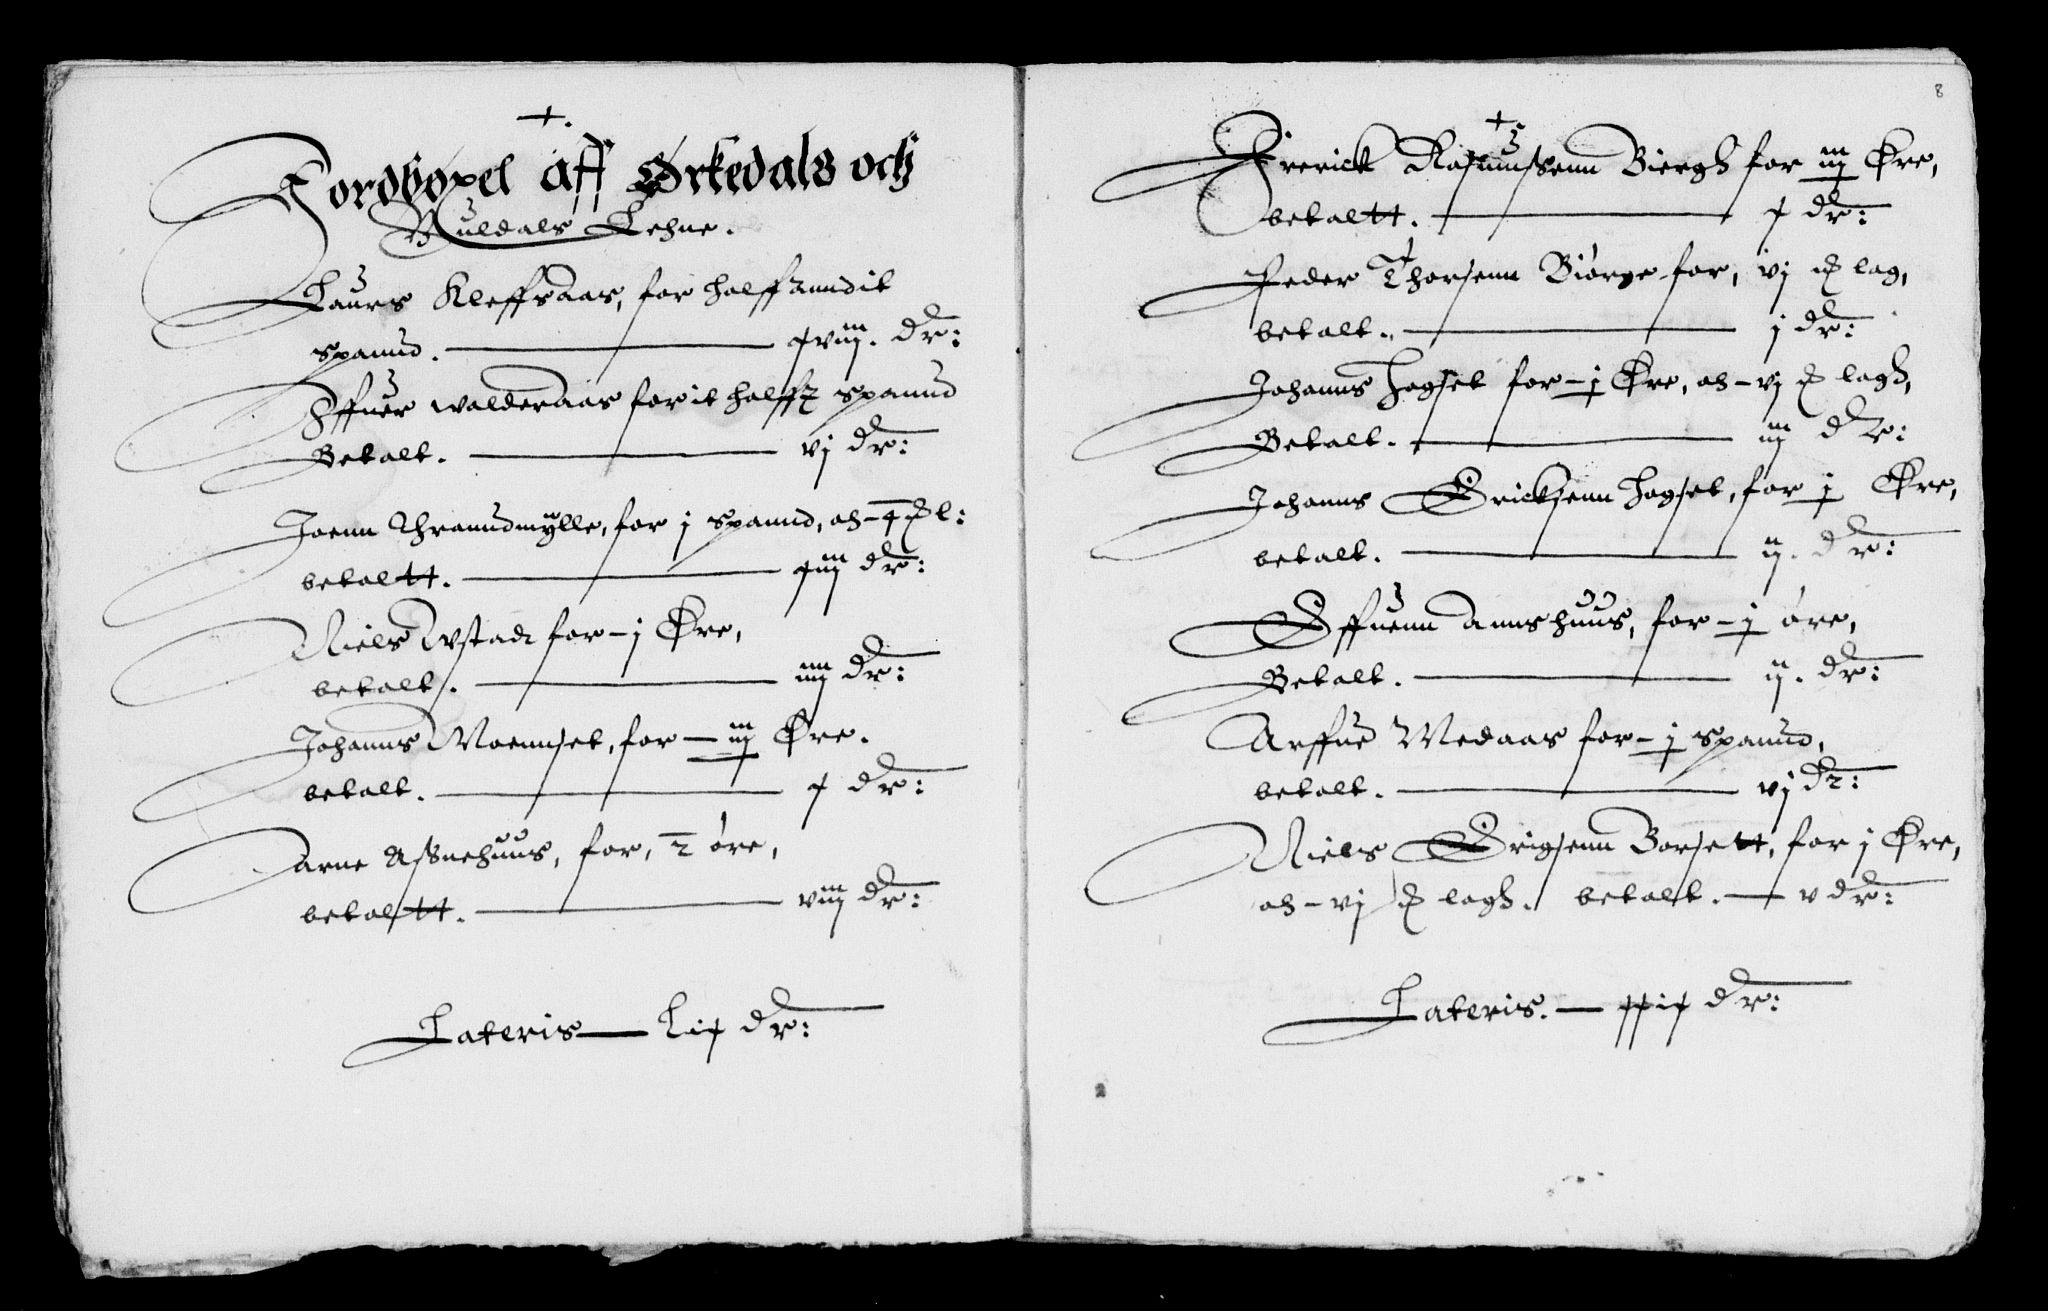 +.
Jordboxel aff Ørkedals och
Guldals Lehne.
Laurs Kleffsaas, for halffanndit
spannd. — xviij. dr:
Iffuer walderaas for it halfft spannd
Betalt. — vj dr:
Joenn Thranndmÿlle, for j spannd, och - x ꝑd l:
betaltt. — xiij dr:
Niels Wstad for - j Øre,
betalt. — iiij dr:
Johanns Moennset, for — iij Øre.
betalt. — x dr:
arne Assnehuus, for, 2 øre,
betaltt. — viij dr:
Lateris — Lix dr:
8
+
Frerick Rasmussenn Biergh for iij Øre,
betaltt. — x dr:
Peder Thorsenn Biørge for, vj ꝑd lag,
betalt. — j dr:
Johanns Hogset for - j Øre, och - vj ꝑd lagh,
Betalt. — iij dr:
Johanns Ericksenn Hogset, for j Øre,
betalt. — ij. dr:
Effuenn annshuus, for - j øre,
Betalt. — ij. dr:
Arffue Medaas for - j spannd,
betalt. — vj dr:
Niels Erigsenn Borsett, for j Øre,
och - vj ꝑd lagh. betalt. — v dr:
Lateris. — xxix dr: